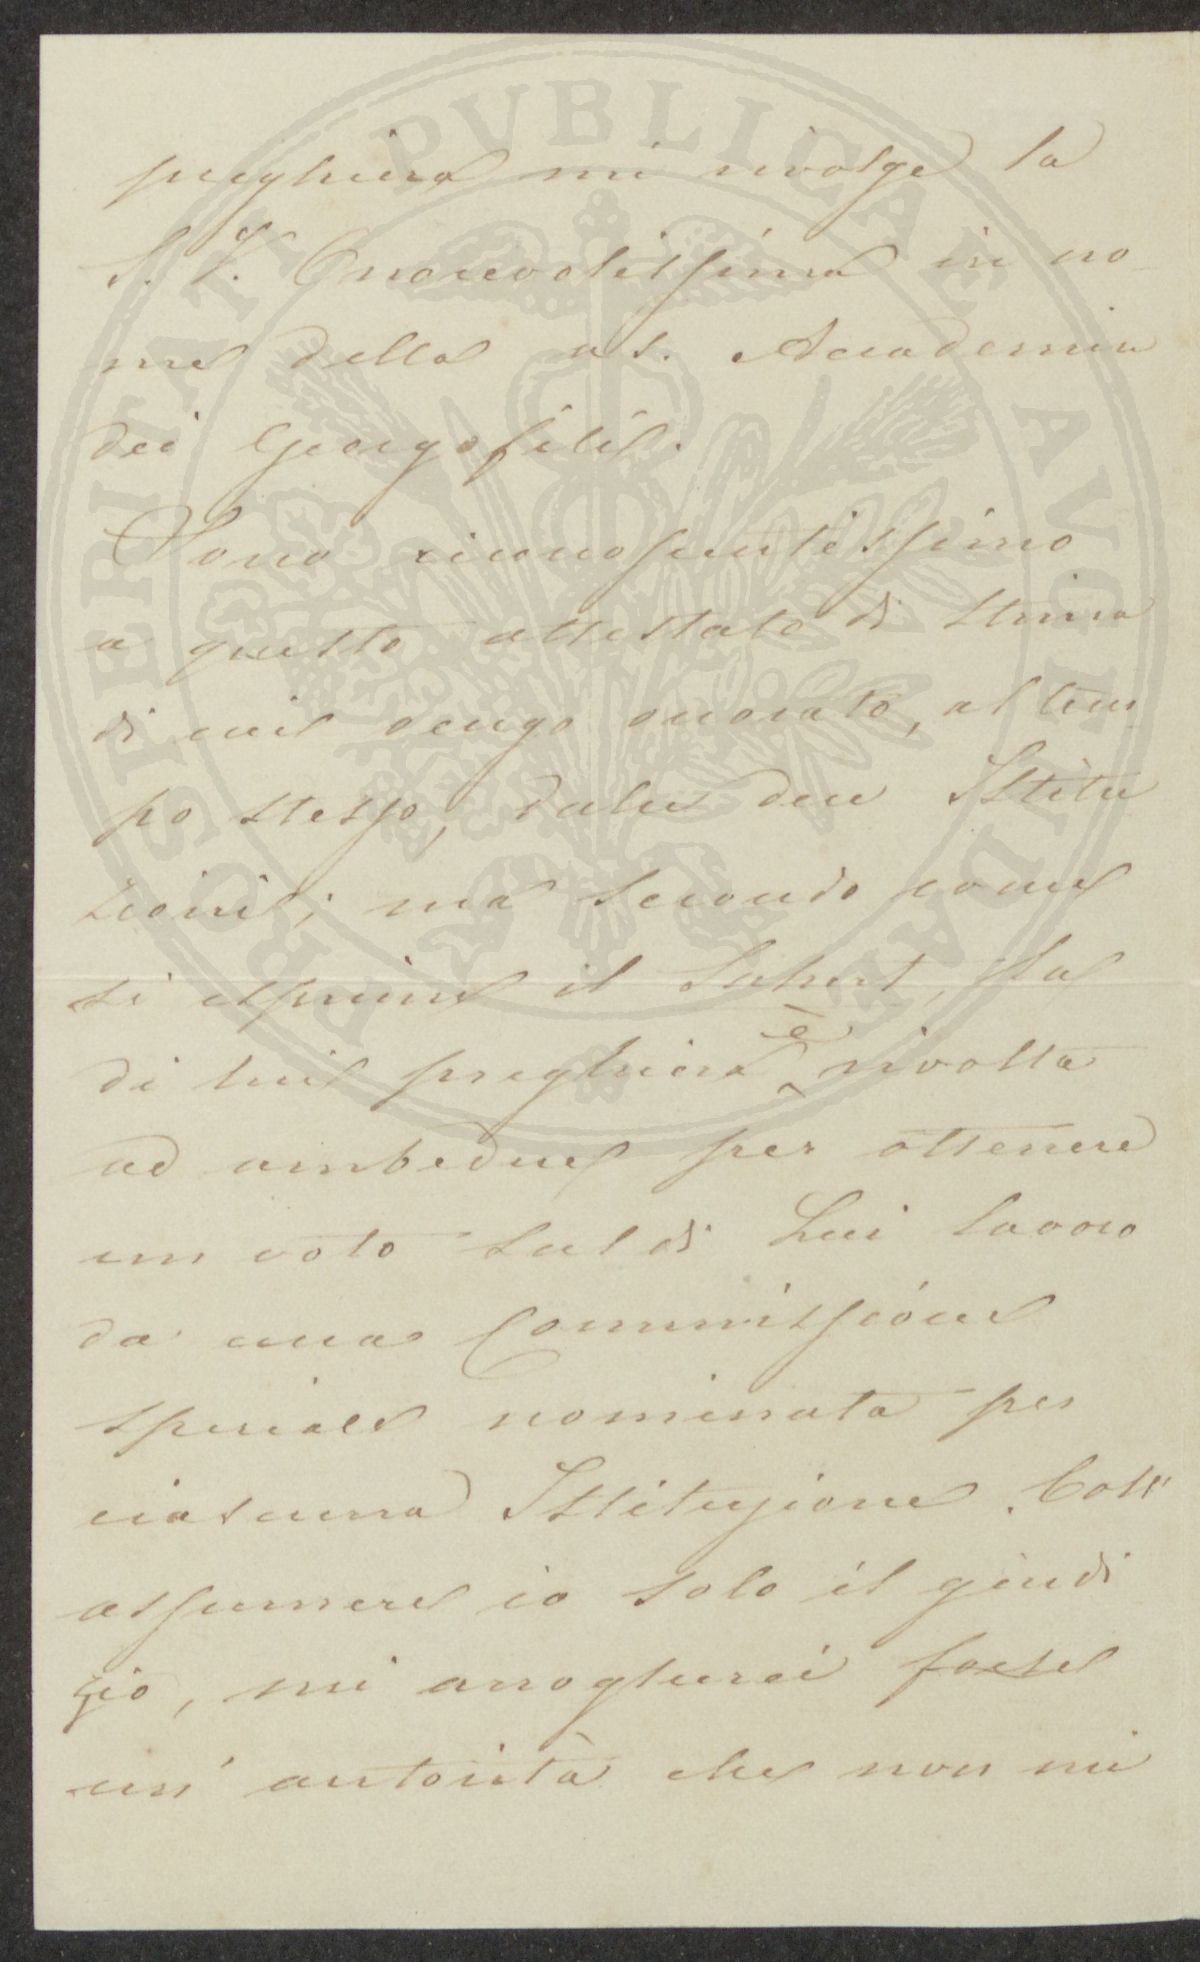 preghiera mi rivolge la
S. V. Onorevolissima in no
me della n s. Accademia
dei Georgofili.
Sono riconoscentissimo
a questo attestato di stima
di cui vengo onorato, al tem
po stesso, dalle due Istitu
zioni; ma secondo come
si esprime il la
di lui preghiera è rivolta
ad ambedue per ottenere
un voto sul di Lui lavoro
da una Commissione
speciale nominata per
ciascuna Istituzione. Coll'
assumere io solo il giudi
zio, mi arrogherei forse
un' autorità che non mi
PROSPERITATI PVBLICAE AVGENDAE